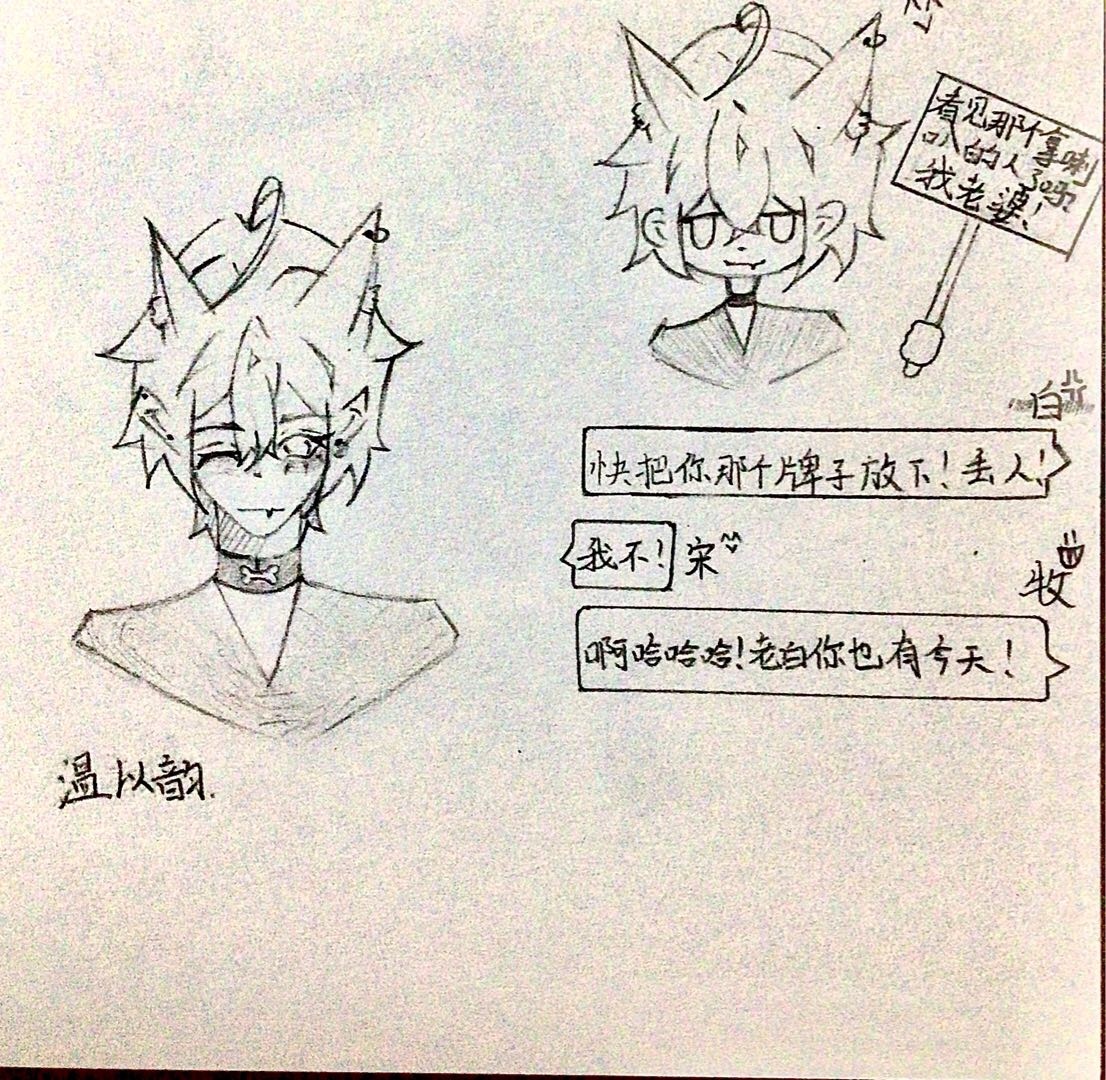 看见那个拿喇
叭的人了吗?
我老婆!
白
快把你那个牌子放下!丢人!
我不!
宋
牧
啊哈哈哈!老白你也有今天!
温以韵.